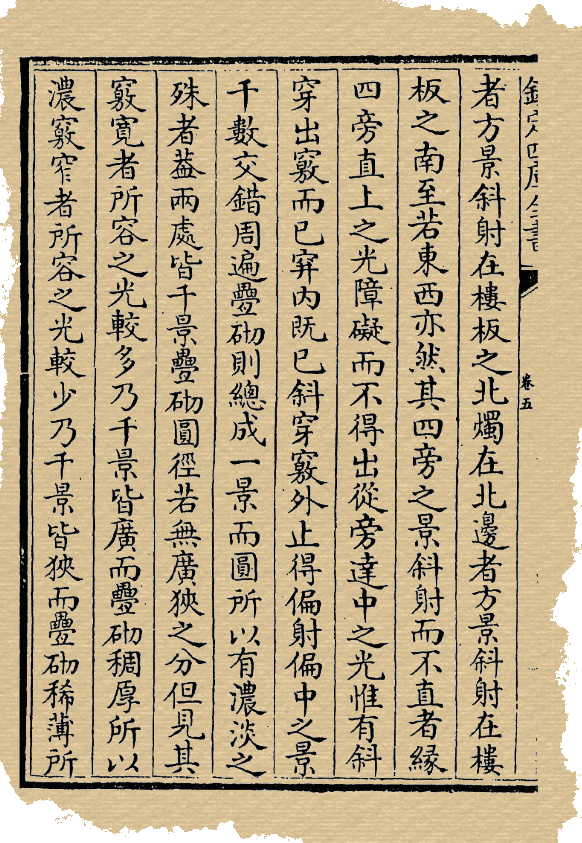 欽定四庫全書
卷五
者方景斜射在樓板之北燭在北邊者方景斜射在樓
板之南至若東西亦然其四旁之景斜射而不直者緣
四旁直上之光障礙而不得出從旁達中之光惟有斜
穿出竅而已穽内既已斜穿竅外止得偏射偏中之景
千數交錯周遍疊砌則總成一景而圓所以有濃淡之
殊者葢兩處皆千景疊砌圓徑若無廣狹之分但見其
竅寛者所容之光較多乃千景皆廣而疊砌稠厚所以
濃竅窄者所容之光較少乃千景皆狹而疊砌稀薄所